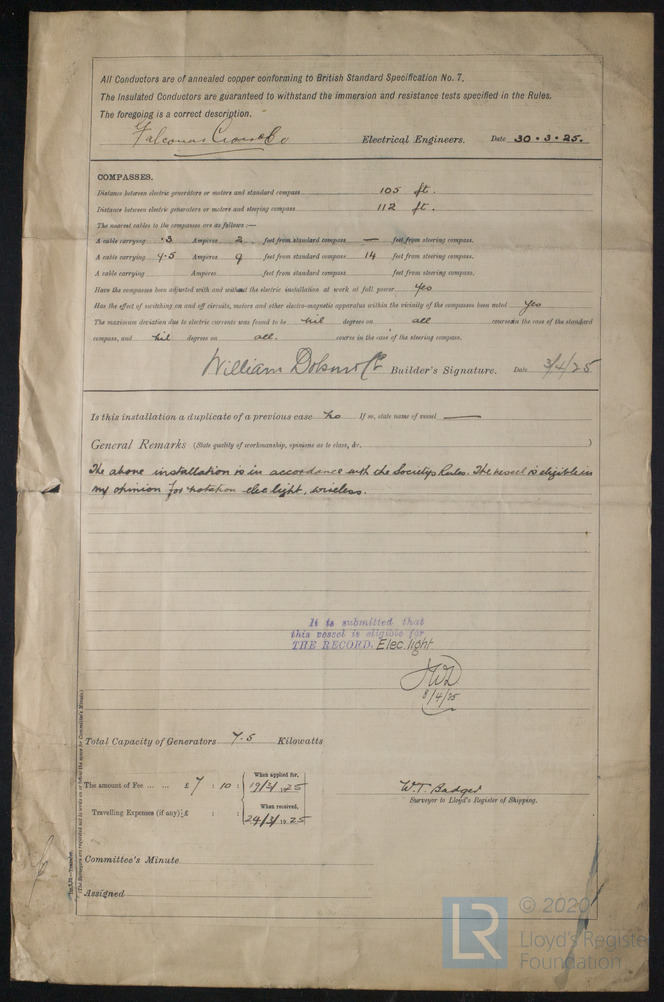 All Conductors are of annealed copper conforming to British Standard Specification No. 7.
The Insulated Conductors are guaranteed to withstand the immersion and resistance tests specified in the Rules.
The foregoing is a correct description.
Falconar Cross & Co Electrical Engineers. Date 30.3.25.
COMPASSES.
Distance between electric generators or motors and standard compass 105 ft.
Distance between electric generators or motors and steering compass 112 ft.
The nearest cables to the compasses are as follows:—
A cable carrying .3 Amperes 2 feet from standard compass — feet from steering compass.
A cable carrying 4.5 Amperes 9 feet from standard compass 14 feet from steering compass.
A cable carrying Amperes feet from standard compass feet from steering compass.
Have the compasses been adjusted with and without the electric installation at work at full power yes
Has the effect of switching on and off circuits, motors and other electro-magnetic apparatus within the vicinity of the compasses been noted yes
The maximum deviation due to electric currents was found to be nil degrees on all course in the case of the standard
compass, and nil degrees on all. course in the case of the steering compass.
William Dobson & Co Builder's Signature. Date 3/4/25
Is this installation a duplicate of a previous case no If so, state name of vessel —
General Remarks (State quality of workmanship, opinions as to class, &c. )
The above installation is in accordance with the Society's Rules. The vessel is eligible in
my opinion for notation elec light, wireless.
It is submitted that
this vessel is eligible for
THE RECORD. Elec. light
8/4/25
Total Capacity of Generators 7.5 Kilowatts
The amount of Fee ... ... £ 7 : 10 : When applied for, 19/3/25
Travelling Expenses (if any) £ : : When received, 24/3/1925
W.T. Badger
Surveyor to Lloyd's Register of Shipping.
Committee's Minute
Assigned
(The Surveyors are requested not to write on or below the space for Committee's Minute.)
LR
© 2020
Lloyd's Register
Foundation